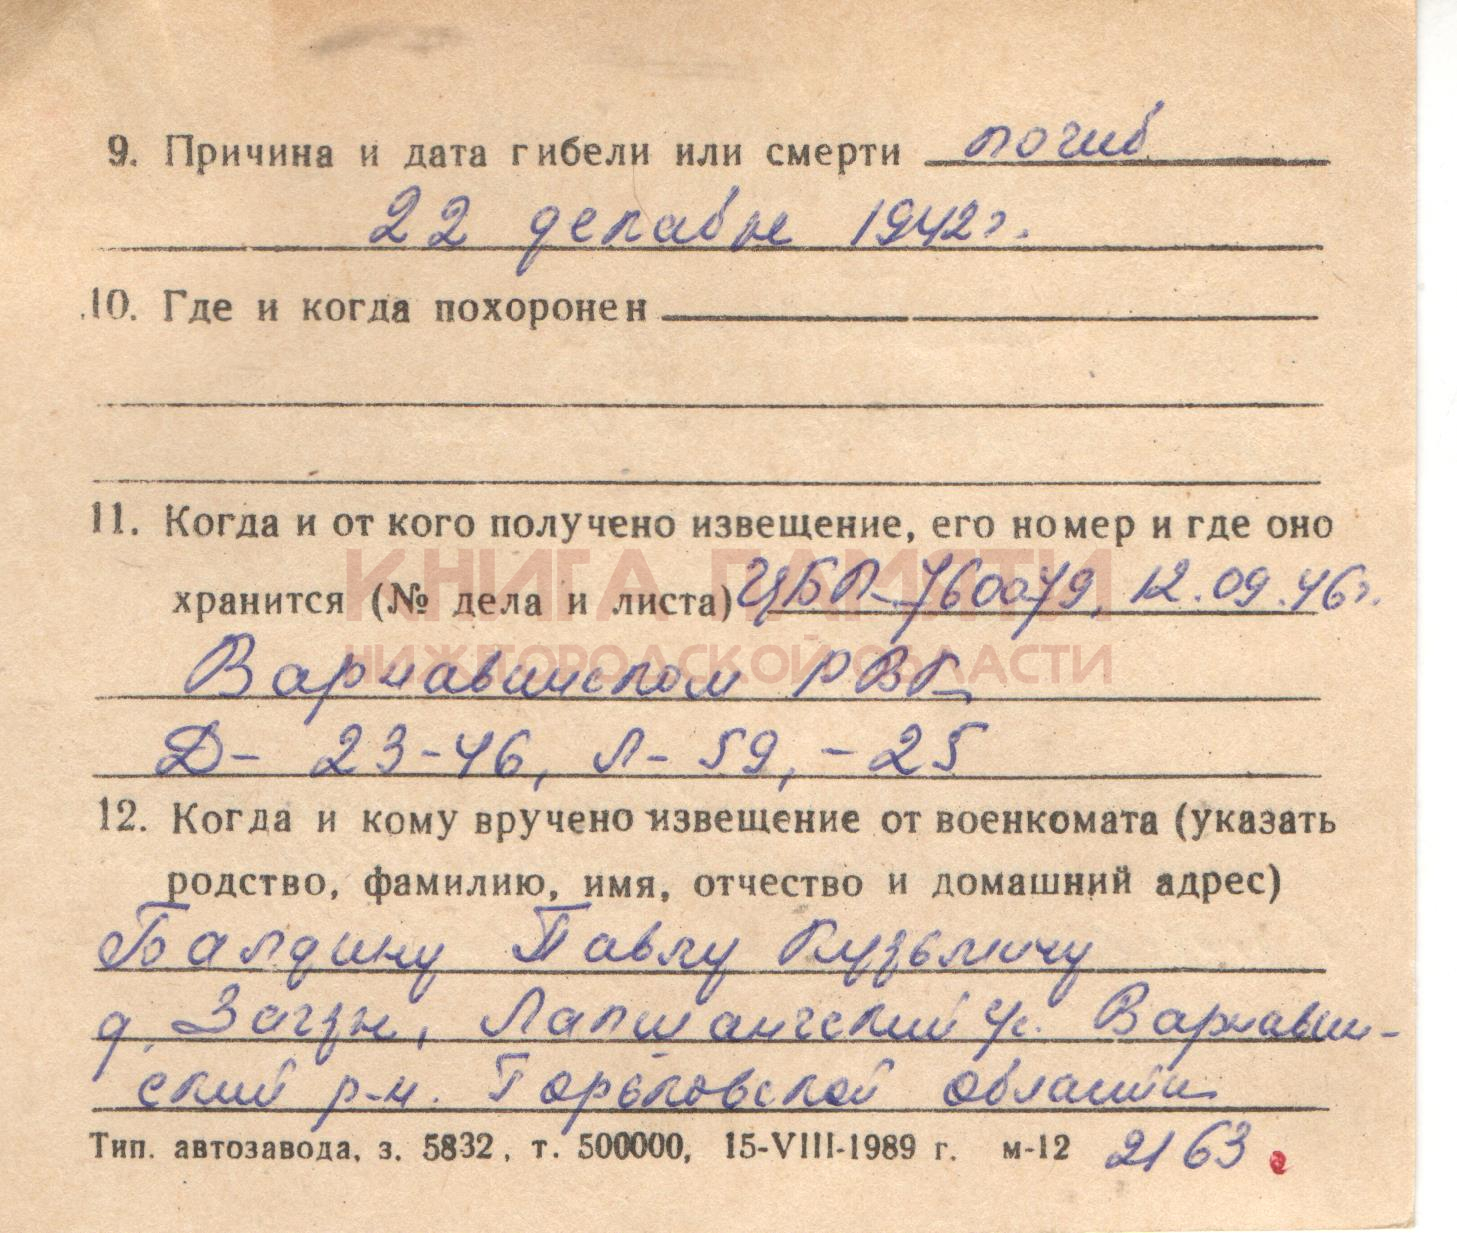 9. Причина и дата гибели или смерти погиб
22 декабря 1942г.
10. Где и когда похоронен
11. Когда и от кого получено извещение, его номер и где оно
КНИГА ПАМЯТИ
хранится (№ дела и листа) ЦБП-760079, 12.09.46г.
НИЖЕГОРОДСКОЙ ОБЛАСТИ
Варнавинском РВК
Д- 23-46, Л- 59, -25
12. Когда и кому вручено извещение от военкомата (указать
родство, фамилию, имя, отчество и домашний адрес)
Балдину Павлу Кузьмичу
д. Лапшангский Варнавин-
ский р-н. Горьковской области
Тип. автозавода, з. 5832, т. 500000, 15-VIII-1989 г. м-12 2163